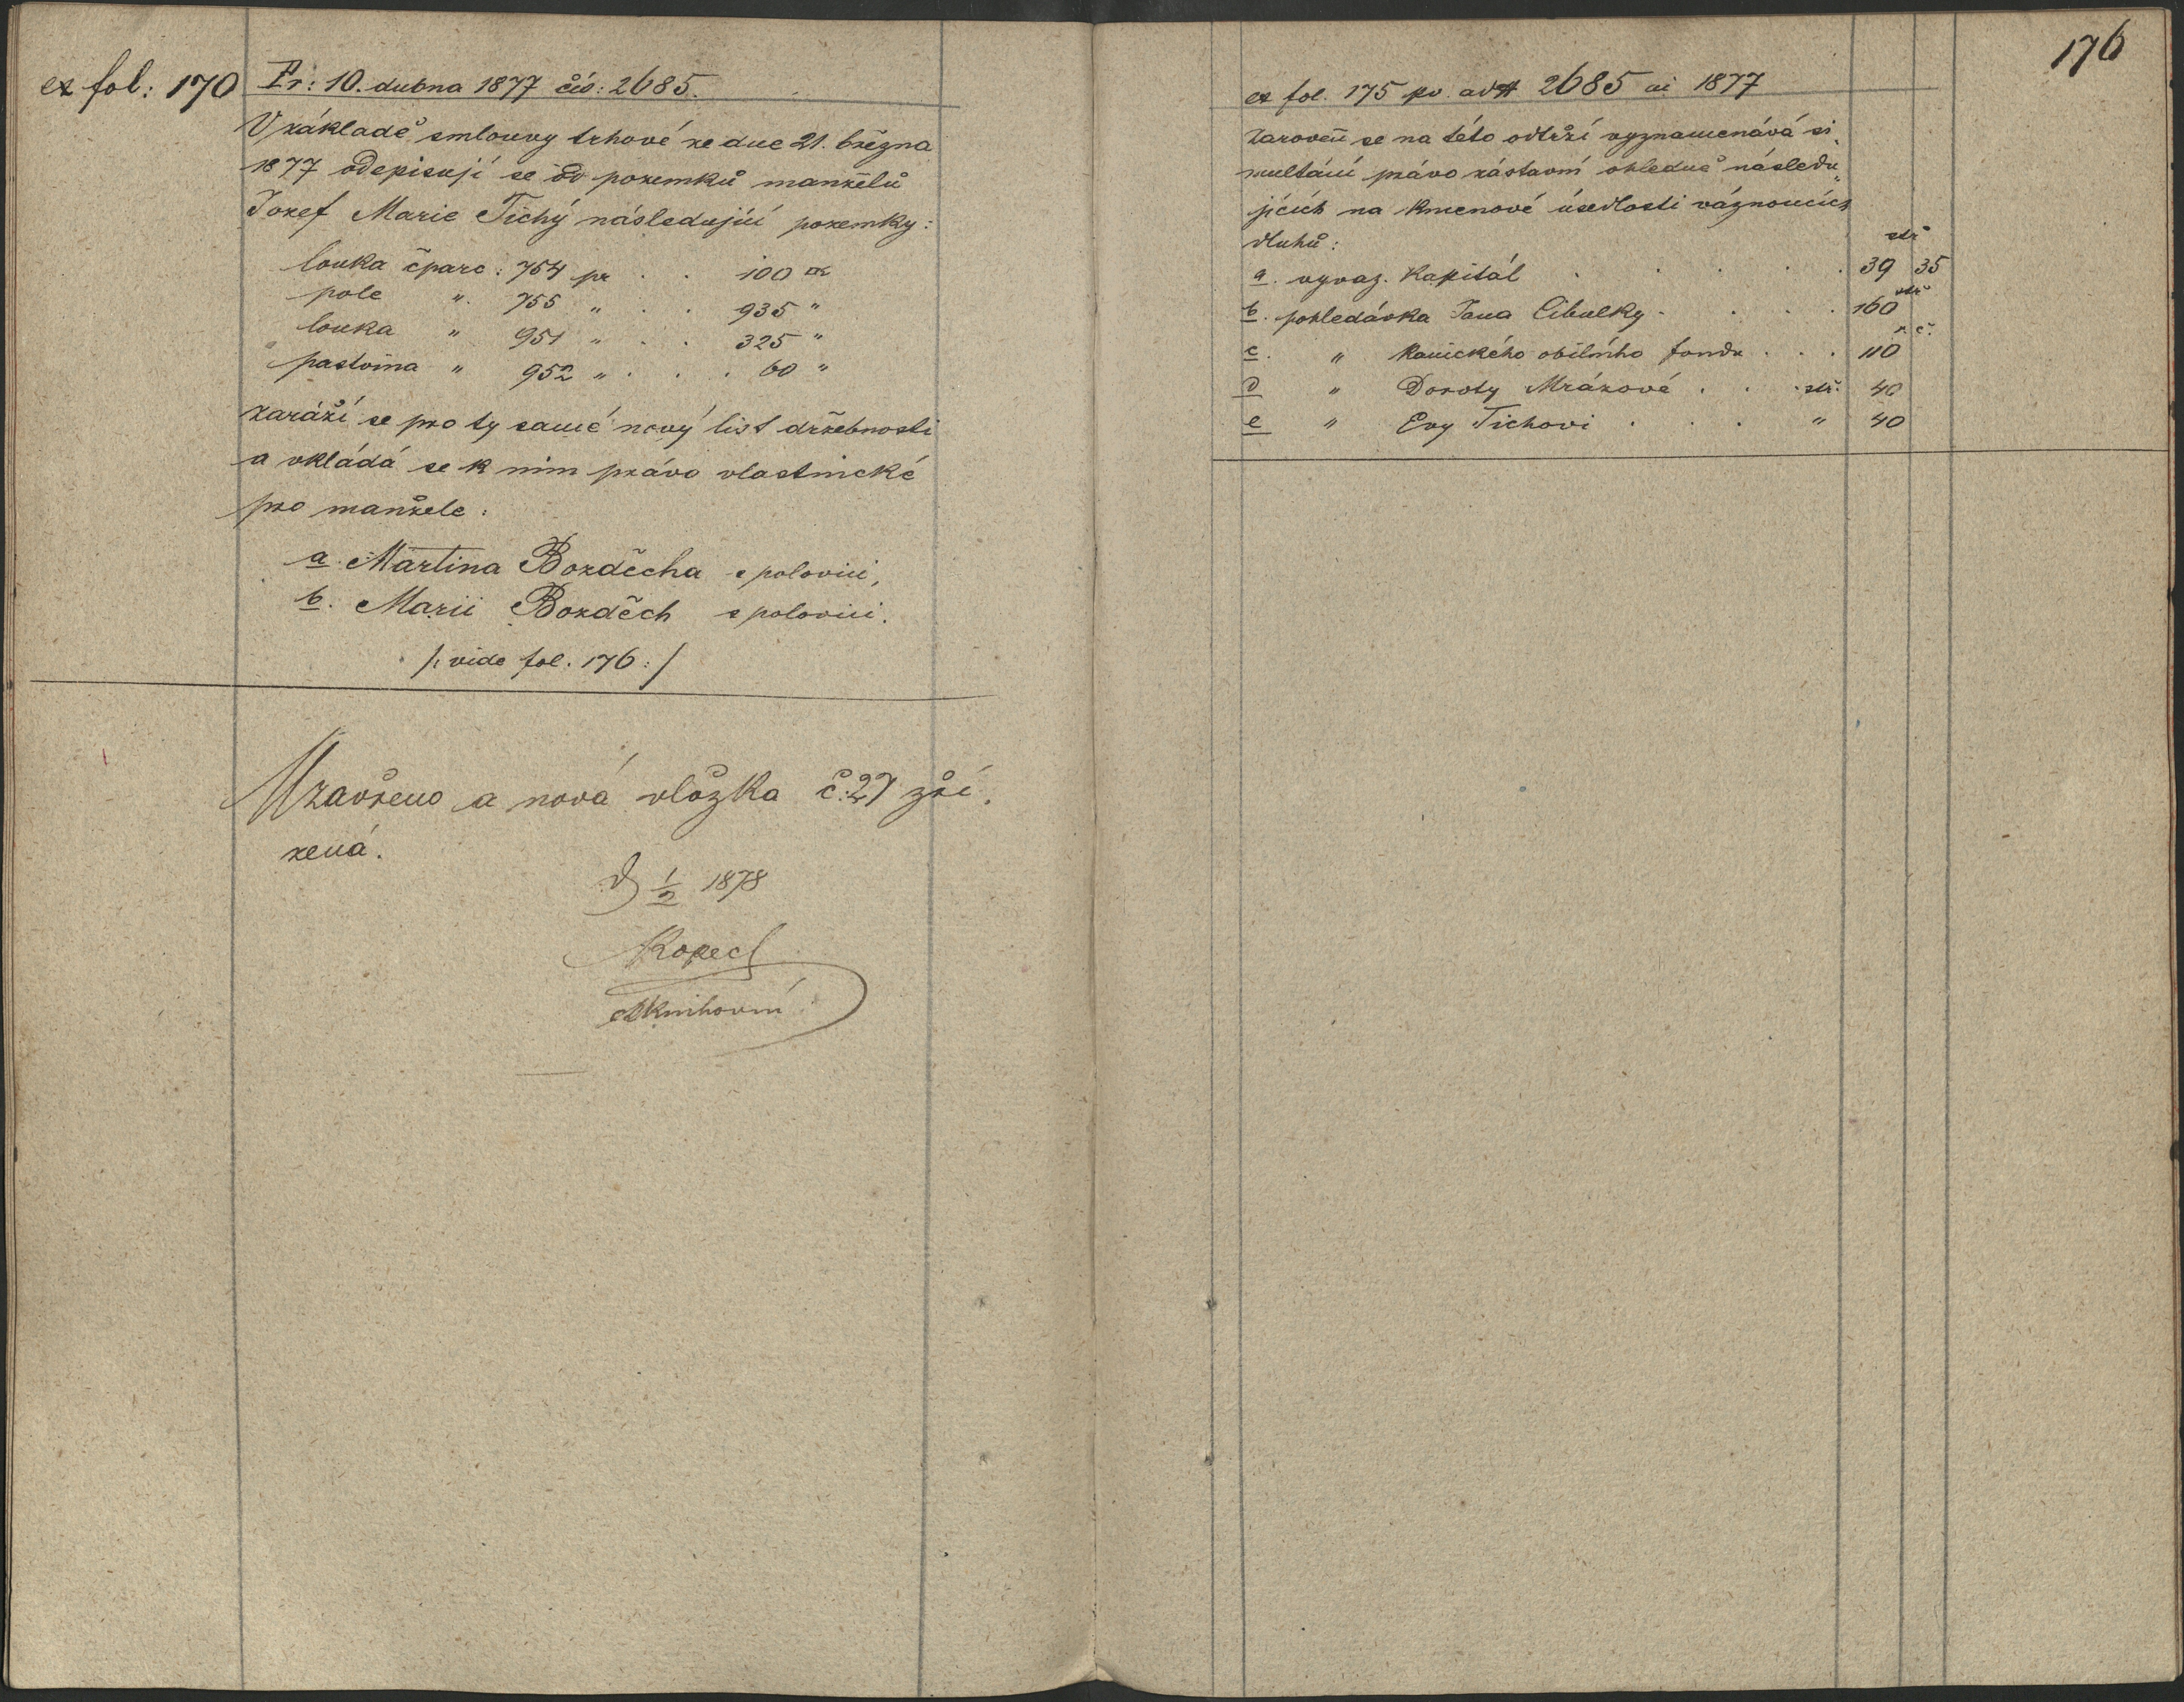 ex fol: 170 Pr: 10. dubna 1877 čís: 2685.
V základě smlouvy trhové ze dne 21. března
1877 odepisují se od pozemků manželů
Jozef Marie Tichý následující pozemky:
louka čparc: 754 pr . . 100 □°
pole " 755 " . . 935 "
louka " 951 " . . 325 "
pastvina " 952 " . . . 60 "
zaráží se pro ty samé nový list držebnosti
a vkládá se k nim právo vlastnické
pro manžele:
a. Martina Bozděcha s polovicí,
b. Marii Bozděch s polovicí.
/: vide fol. 176 :/
Uzavřeno a nová vložka č: 27 zří
zená.
D 1/2 1878
Kopec
knihovní
176
ex fol. 175 pv. ad # 2685 ai 1877
Zároveň se na této odtrží vyznamenává si
multání právo zástavní ohledně následu„
jících na kmenové úsedlosti váznoucích
dluhů: stř
a. vyvaz. Kapitál . . . . . 39 35
b. pohledávka Jana Cibulky . . . . 160 stř
c. " Kanického obilního fondu . . . 110 r. č.
d " Doroty Mrázové . . . stř. 40
e " Evy Tichovi . . . " 40